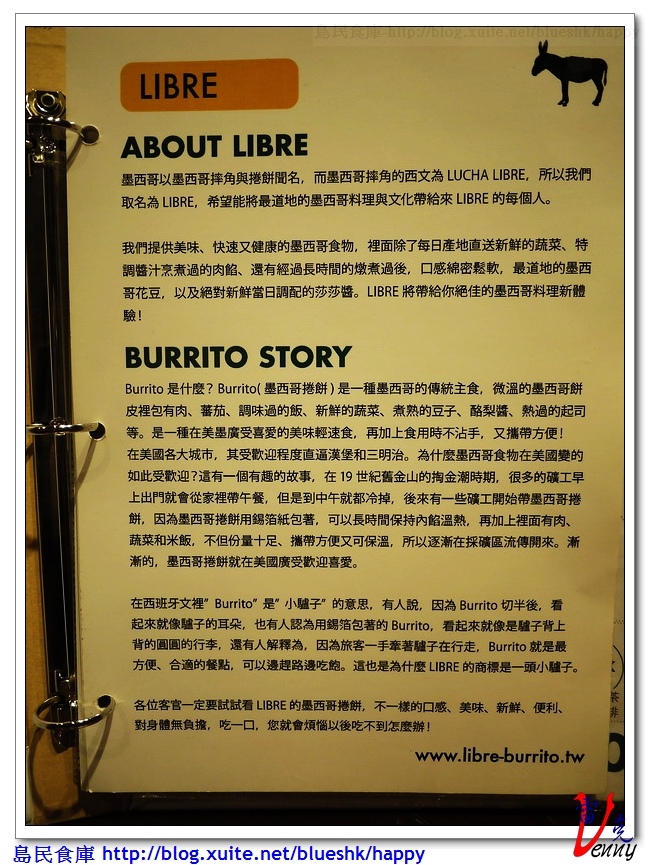 島民食庫 http://blog.xuite.net/blueshk/happy
LIBRE
ABOUT LIBRE
墨西哥以墨西哥摔角與捲餅聞名，而墨西哥摔角的西文為 LUCHA LIBRE，所以我們
取名為 LIBRE，希望能將最道地的墨西哥料理與文化帶給來 LIBRE 的每個人。
我們提供美味、快速又健康的墨西哥食物，裡面除了每日產地直送新鮮的蔬菜、特
調醬汁烹煮過的肉餡、還有經過長時間的燉煮過後，口感綿密鬆軟，最道地的墨西
哥花豆，以及絕對新鮮當日調配的莎莎醬。LIBRE 將帶給你絕佳的墨西哥料理新體
驗！
BURRITO STORY
Burrito 是什麼？Burrito( 墨西哥捲餅 ) 是一種墨西哥的傳統主食，微溫的墨西哥餅
皮裡包有肉、蕃茄、調味過的飯、新鮮的蔬菜、煮熟的豆子、酪梨醬、熱過的起司
等。是一種在美墨廣受喜愛的美味輕速食，再加上食用時不沾手，又攜帶方便！
在美國各大城市，其受歡迎程度直逼漢堡和三明治。為什麼墨西哥食物在美國變的
如此受歡迎？這有一個有趣的故事，在 19 世紀舊金山的掏金潮時期，很多的礦工早
上出門就會從家裡帶午餐，但是到中午就都冷掉，後來有一些礦工開始帶墨西哥捲
餅，因為墨西哥捲餅用錫箔紙包著，可以長時間保持內餡溫熱，再加上裡面有肉、
蔬菜和米飯，不但份量十足、攜帶方便又可保溫，所以逐漸在採礦區流傳開來。漸
漸的，墨西哥捲餅就在美國廣受歡迎喜愛。
在西班牙文裡”Burrito”是”小驢子”的意思，有人說，因為 Burrito 切半後，看
起來就像驢子的耳朵，也有人認為用錫箔包著的 Burrito，看起來就像是驢子背上
背的圓圓的行李，還有人解釋為，因為旅客一手牽著驢子在行走，Burrito 就是最
方便、合適的餐點，可以邊趕路邊吃飽。這也是為什麼 LIBRE 的商標是一頭小驢子。
各位客官一定要試試看 LIBRE 的墨西哥捲餅，不一樣的口感、美味、新鮮、便利、
對身體無負擔，吃一口，您就會煩惱以後吃不到怎麼辦！
www.libre-burrito.tw
茶
Venny
島民食庫 http://blog.xuite.net/blueshk/happy